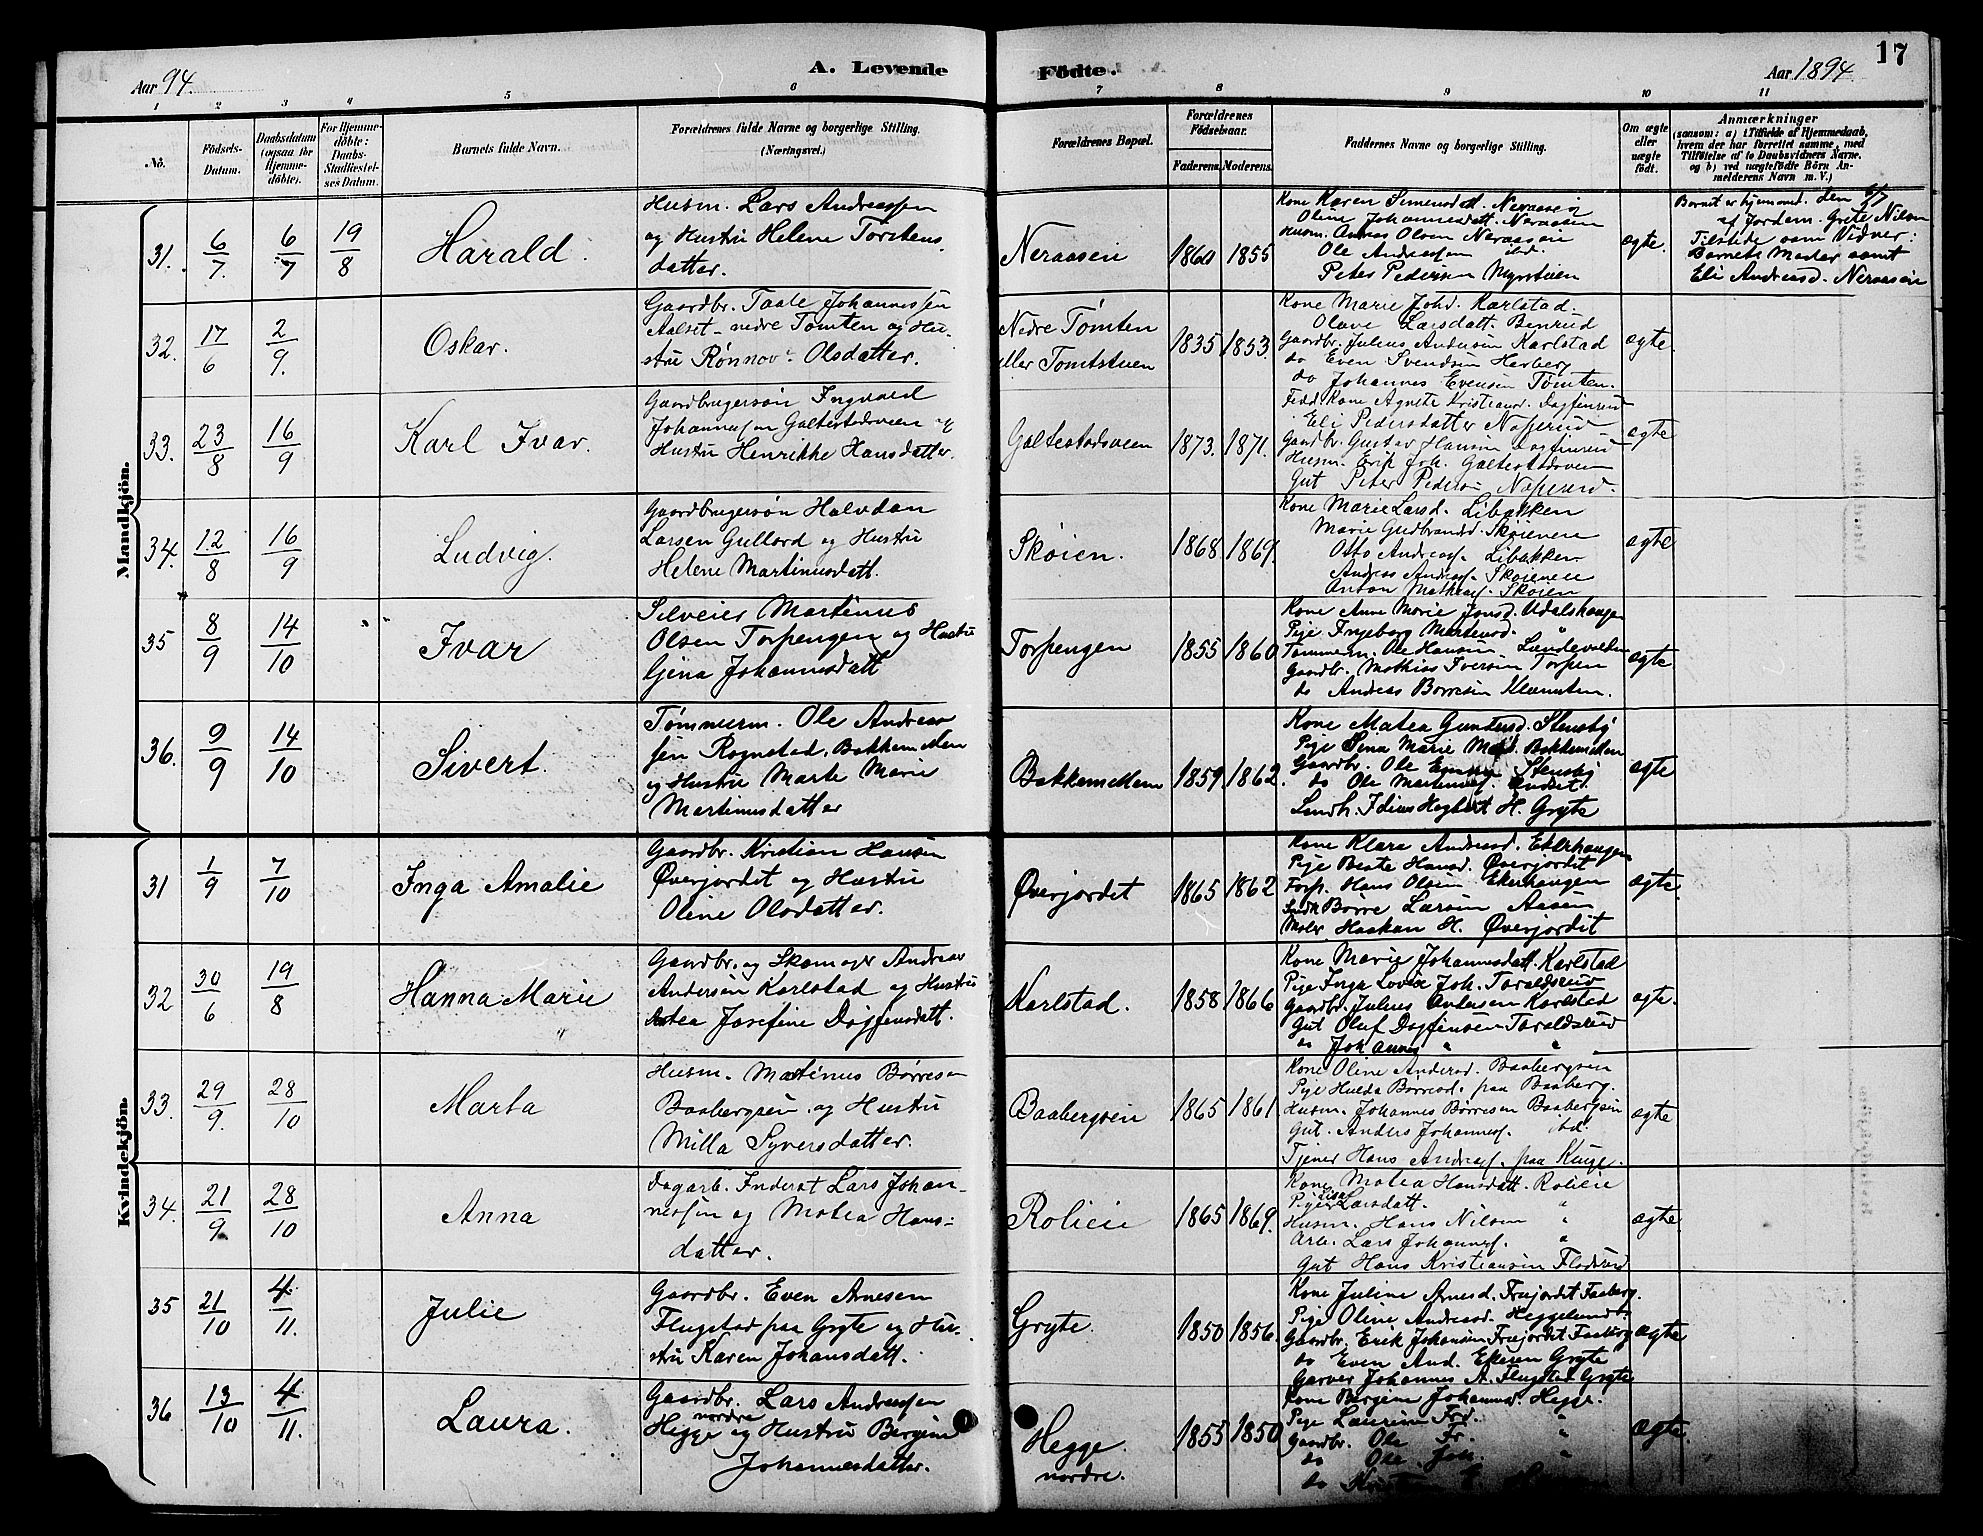 17
Aar 94.
A. Levende
Fødte.
Aar 1894
1 2 3 4 5 6 7 8 9 10 11
No.
Fødsels-Datum.
Daabsdatum (ogsaa for Hjemmedöbte).
For Hjemmedöbte: Daabs-Stadfæstelses Datum.
Barnets fulde Navn.
Forældrenes fulde Navne og borgerlige Stilling. (Næringsvei.)
Forældrenes Bopæl.
Forældrenes Fødselsaar.
Faderens. Moderens.
Faddernes Navne og borgerlige Stilling.
Om ægte eller uægte født.
Anmærkninger
(saasom: a) i Tilfælde af Hjemmedaab, hvem der har forrettet samme, med Tilføielse af to Daabsvidners Navne, og b) ved uægtefødte Börn Anmelderens Navn m. V.)
Mandkjön.
31. 6/7. 6/7 19/8 Harald.
Husm. Lars Andreassen
og Hustru Helene Torstens
datter.
Neraasen 1860 1855
Kone Karen Simensdatt. Neraasen
Oline Johannesdatt. Neraasen
Husm. Andreas Olsen Neraasen
Ole Andreassen ibd.
Peter Pedersen Myrstuen
ægte.
Barnet er hjemmed. den 6/7
af Jordem. Grete Nilsen
Tilstede som Vidner:
Barnets Moder samt
Eli Andreasd. Neraasen
32. 17/6 2/9. Oskar.
Gaardbr. Taale Johannessen
Aalset - nedre Tømten og Hu-
stru Rønnov Olsdatter.
Nedre Tømten
eller Tomtstuen
1835 1853.
Kone Marie Johd. Karlstad
Olave Larsdatt. Benrud
Gaardbr. Julius Andersen Karlstad
do Even Svendsen Harberg
do Johannes Evensen Tømten.
ægte.
33. 23/8 16/9 Karl Ivar.
Gaardbrugersøn Ingvald
Johannesen Galterstadsveen og
Hustru Henrikke Hansdatter.
Galterstadsveen 1873. 1871.
Fadd. Kone Agnete Kristiansd. Dagfinrud
Eli Pedersdatter Naperud
Gaardbr. Gustav Hansen Dagfinrud
Husm. Erik Joh. Galterstadsveen
Gut Peter Pedersen Naperud.
ægte
34. 12/8 16/9 Ludvig.
Gaardbrugersøn Halvdan
Larsen Gullord og Hustru
Helene Martinusdatt.
Skøien. 1868 1869.
Kone Marie Larsd. Libakken
Marie Gudbrandsd. Skøienen
Otto Andreasf. Libakken
Andreas Andreasf. Skøienen
Anton Mathiasf. Skøien
ægte
35 8/9 14/10 " " Ivar
Selveier Martinus
Olsen Torpengen og Hustru
Gina Johannesdatt
Torpengen 1855 1860
Kone Anne Marie Jonsd. Udalshaugen
Pige Ingeborg Martinsd.
Tømmerm. Ole Hansen
Gaardbr. Mathias Iversen Torpen
do Andreas Børresen Klemsten.
ægte
36. 9/9 14/10 Sivert.
Tømmerm. Ole Andreas
sen Rognstad, Bakkemellem
og Hustru Marte Marie
Martinusdatter
Bakkemellem 1859. 1862.
Kone Matea Gundersd. Stensby
Pige Lina Marie Bakkemellem
Gaardbr. Ole Stensby
do Ole Martinusf.
H. Gryte
ægte
Kvindekjön.
31 1/9 7/10 Inga Amalie
Gaardbr. Kristian Hansen
Øverjordet og Hustru
Oline Olsdatter.
Øverjordet 1865 1862
Kone Klara Andreasd. Ekerhaugen
Pige Beate Hansd. Øverjordet
Forp. Hans Olsen Ekerhaugen
Børre Larsen Aasen
Maler Haakon H. Øverjordet
ægte.
32 30/6 19/8 Hanna Marie
Gaardbr. og Skomager Andreas
Andersen Karlstad og Hustru
Matea Josefine Dagfinsdatt.
Karlstad. 1858 1866
Kone Marie Johannesdatt. Karlstad
Pige Inga Lovise Joh. Taraldsrud
Gaardbr. Julius Andersen Karlstad
Gut Oluf Dagfinsen Taraldsrud
do Johannes " "
ægte.
33. 29/9. 28/10 Marta
Husm. Martinus Børresen
Baabergseien og Hustru
Milla Syversdatter.
Baabergseien 1865 1861
Kone Oline Andersd. Baabergseien
Pige Hulda Børresd. paa Baaberg.
Husm. Johannes Børresen Baabergseien
Gut. Anders Johannesf. ibd.
Tjener Hans Andreasf. paa Kinge.
ægte
34. 21/9 28/10 Anna
Dagarb. Inderst Lars Johan-
nessen og Matea Hans-
datter.
Rolieie 1865 1869.
Kone Matea Hansdatt. Rolieie
Pige Lisa Larsdatt. "
Husm. Hans Nilsen "
Arb. Lars Johannesf. "
Gut Hans Kristiansen Floderud
ægte
35 21/10 4/11. Julie
Gaardbr. Even Arnesen
Flugstad paa Gryte og Hu-
stru Karen Johansdatt.
Gryte. 1850 1856.
Kone Juline Arnesd. Fruejordet Faaberg.
Pige Oline Andreasd. Heggelund
Gaardbr. Erik Johansen Fruejordet Faaberg
do Even And. Ekeren Gryte
Garver Johannes A. Flugstad Gryte
ægte
36 13/10 4/11. Laura.
Gaardbr. Lars Andreassen
Hegge nordre og Hustru Bergine
Johannesdatter.
Hegge.
nordre.
1855 1850
Kone Bergine Johannesd. Hegge.
Pige Laurine Frd. "
Gaardbr. Ole Fr. "
do Ole Joh. "
do
ægte.